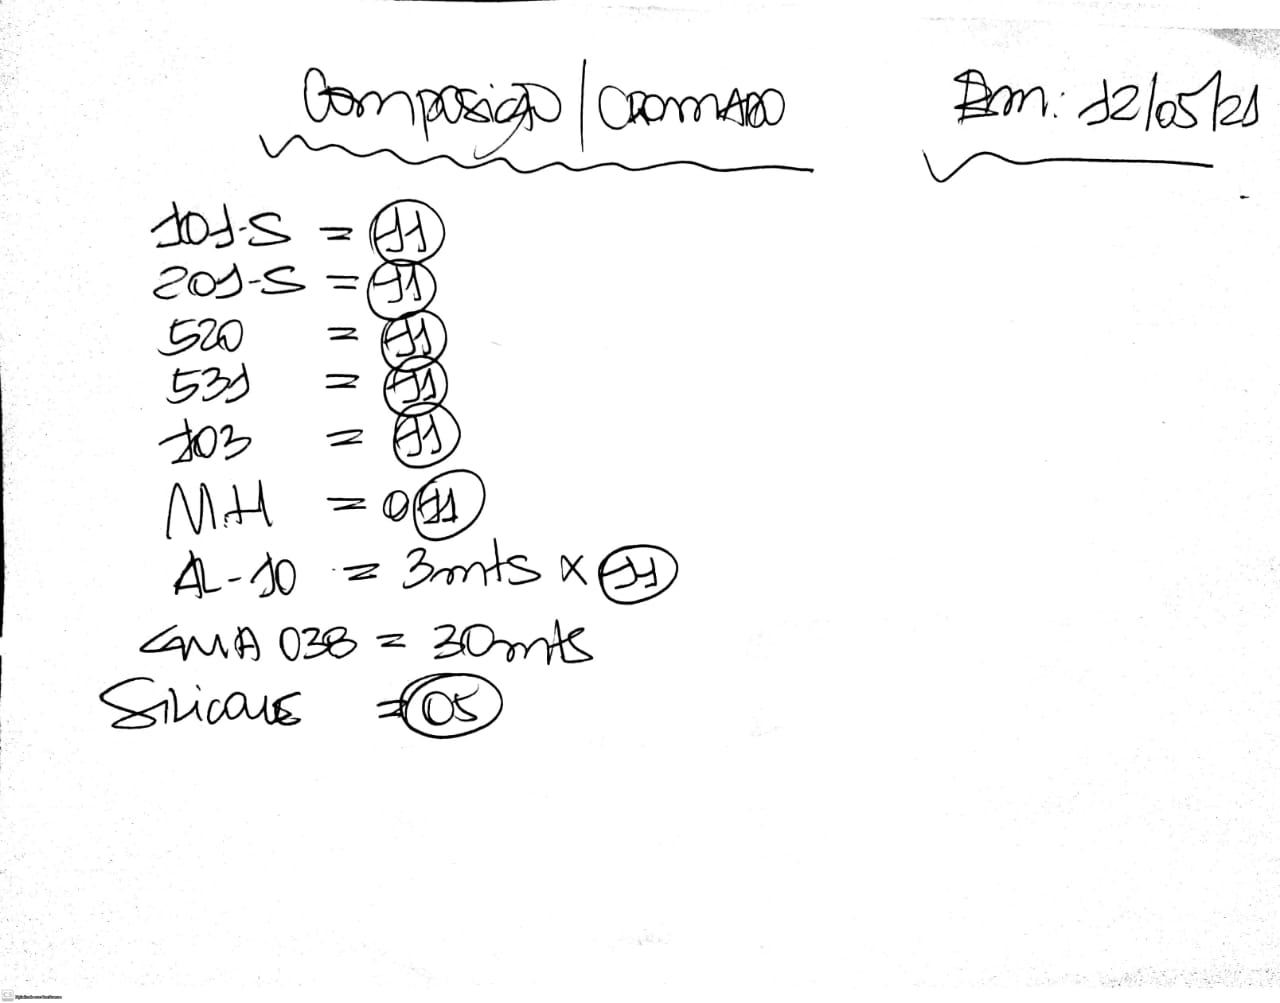 Composição / CROMADO Em: 12/05/21
101-S = 11
201-S = 11
520 = 11
531 = 11
103 = 11
M.H = 011
AL-10 = 3mts x 11
GMA 038 = 30mts
Silicone = 05